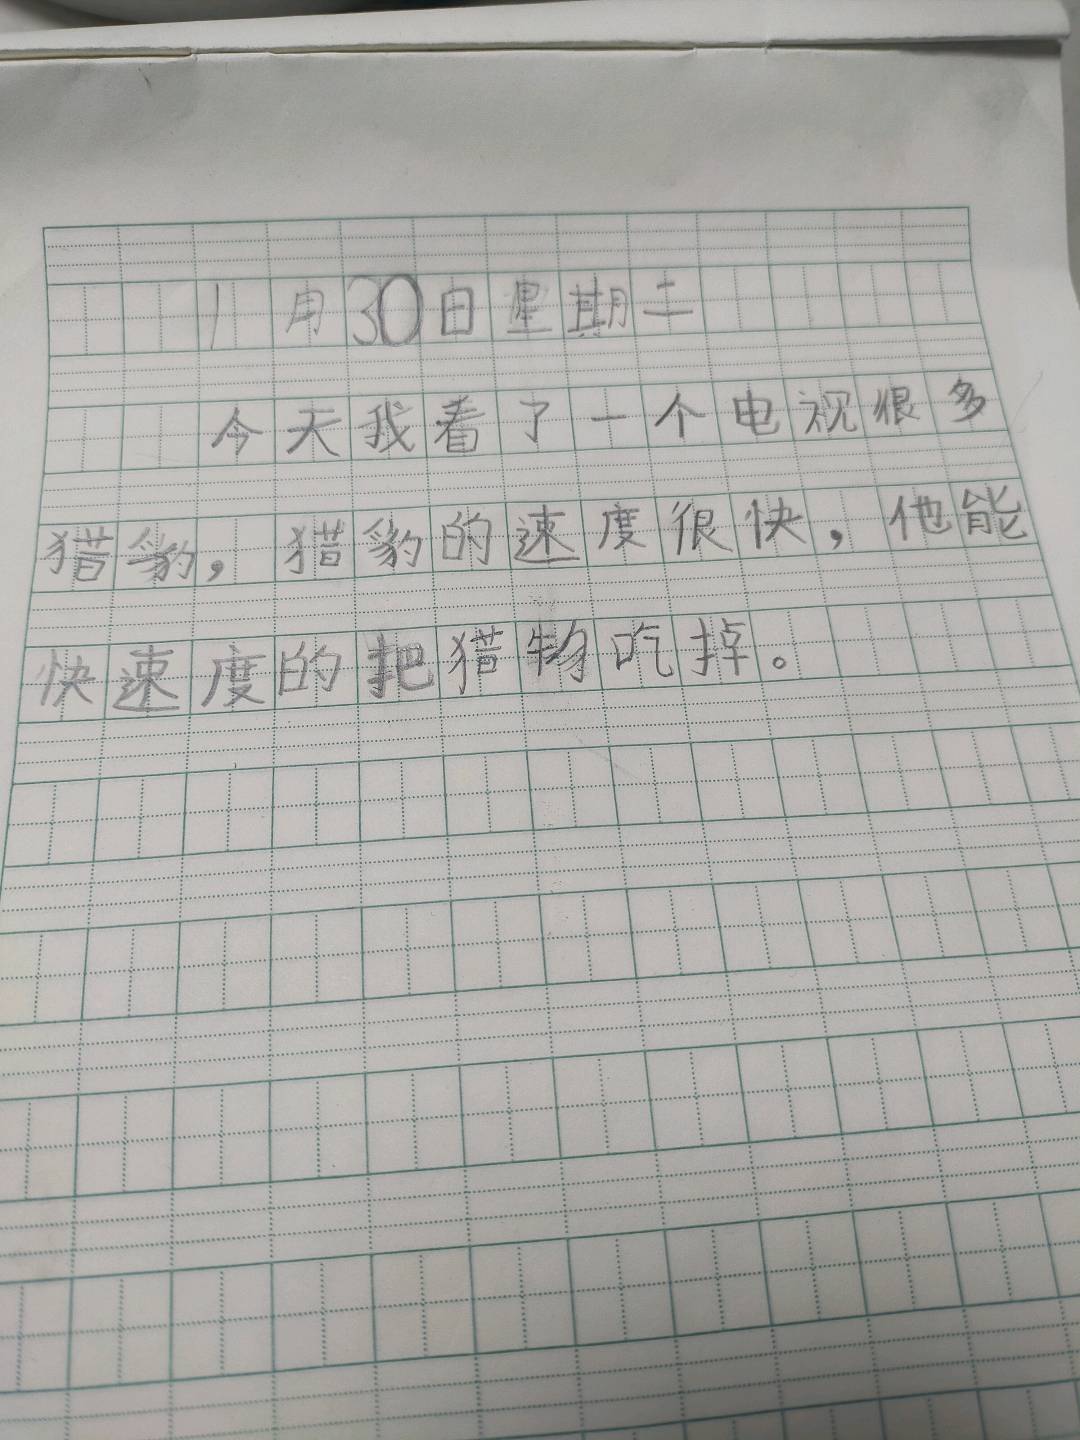 1月30日星期二
今天我看了一个电视很多
猎豹，猎豹的速度很快，他能
快速度的把猎物吃掉。